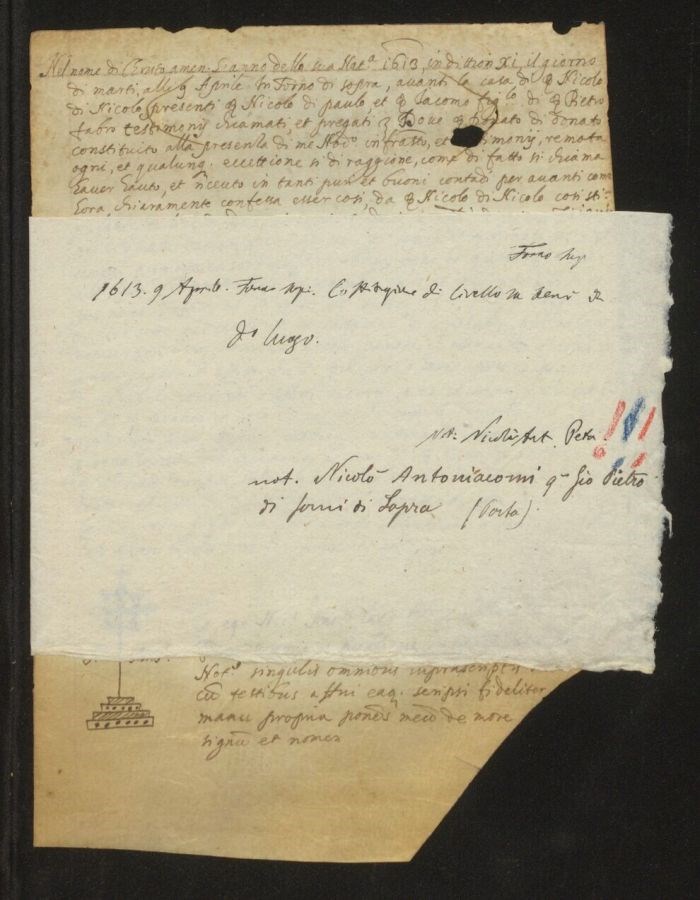 Nel nome di Christo amen. L'anno della sua Natᵃ. 1613 indittion XI, il giorno
di marti, alli 9 Aprile. In Forno di sopra, avanti la casa di q Nicolo
di Nicolo presenti q Nicolo di paulo et q Jacomo figˡᵒ. di q Pietro
fabro testimonij chiamati, et pregati Dove q Donato di Donato
constituito alla presenza di me Nodᵒ. infratto, et testimonij, remota
ogni, et qualunq. eccettione si di raggione, come di fatto si chiama
haver havuto, et riceuto in tanti pur et buoni contadi per avanti come
hora, chiaramente confessa esser cosi, da q Nicolo di Nicolo cosi sti:
Forno sup
1613. 9 Aprile. Forno sup. di livello
dᵒ luogo.
Not: Nicolò Ant. Petri
not. Nicolò Antoniacomi qᵐ Gio Pietro
di Forni di Sopra (Porta)
Notᵒ. singulis omnibus suprascriptis
cū testibus affui eaq. scripsi fideliter
manu propria ponēs meū de more
signū et nomen